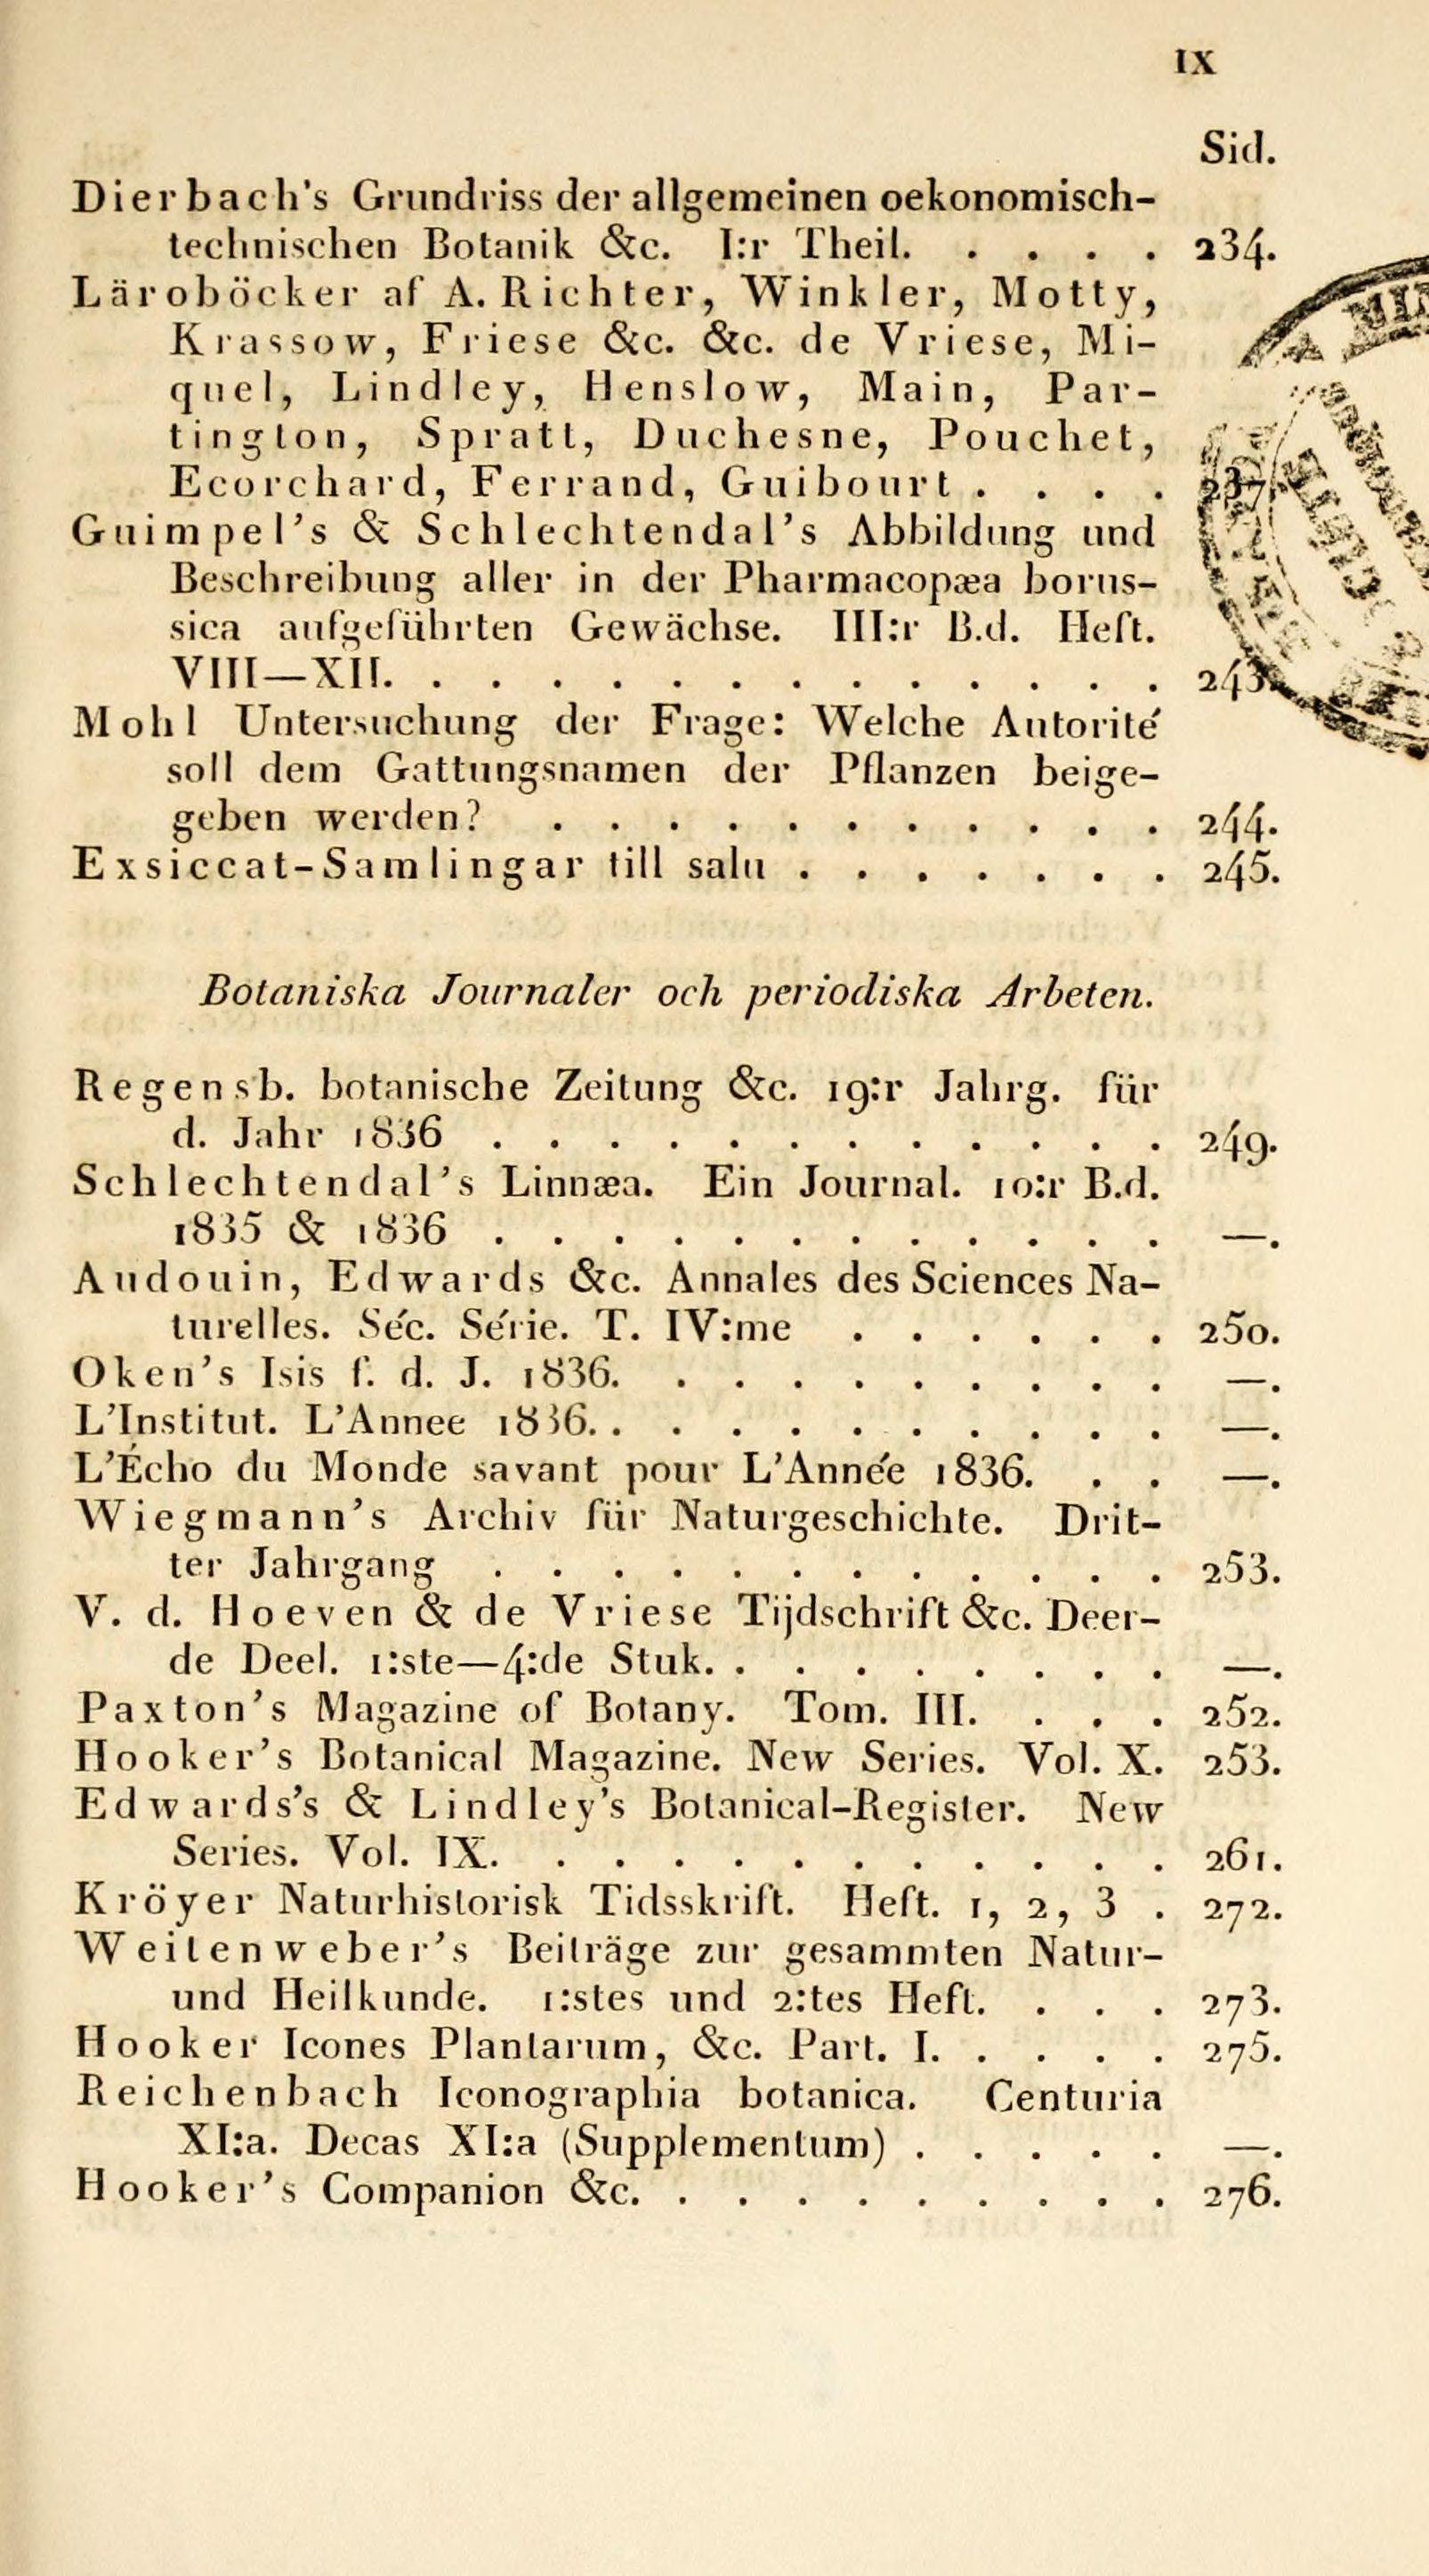 IX
Sid.
Dierbach's Grundriss der allgemeinen oekonomisch-
technischen Botanik &c. I:r Theil. . . . . 234.
Läroböcker af A. Richter, Winkler, Motty,
Krassow, Friese &c. &c. de Vriese, Mi-
quel, Lindley, Henslow, Main, Par-
tington, Spratt, Duchesne, Pouchet,
Ecorchard, Ferrand, Guibourt . . . . 237.
Guimpel's & Schlechtendal's Abbildung und
Beschreibung aller in der Pharmacopæa borus-
sica aufgeführten Gewächse. III:r B.d. Heft.
VIII—XII. . . . . . . . . . . . . . 243.
Mohl Untersuchung der Frage: Welche Autorité
soll dem Gattungsnamen der Pflanzen beige-
geben werden? . . . . . . . . . . . 244.
Exsiccat-Samlingar till salu . . . . . . . 245.
Botaniska Journaler och periodiska Arbeten.
Regensb. botanische Zeitung &c. 19:r Jahrg. für
d. Jahr 1836 . . . . . . . . . . . . 249.
Schlechtendal's Linnæa. Ein Journal. 10:r B.d.
1835 & 1836 . . . . . . . . . . . . —.
Audouin, Edwards &c. Annales des Sciences Na-
turelles. Séc. Série. T. IV:me . . . . . . 250.
Oken's Isis f. d. J. 1836. . . . . . . . . . —.
L'Institut. L'Annee 1836. . . . . . . . . . . —.
L'Écho du Monde savant pour L'Année 1836. . . —.
Wiegmann's Archiv für Naturgeschichte. Drit-
ter Jahrgang . . . . . . . . . . . . 253.
V. d. Hoeven & de Vriese Tijdschrift &c. Deer-
de Deel. 1:ste—4:de Stuk. . . . . . . . . —.
Paxton's Magazine of Botany. Tom. III. . . . 252.
Hooker's Botanical Magazine. New Series. Vol. X. 253.
Edwards's & Lindley's Botanical-Register. New
Series. Vol. IX. . . . . . . . . . . . 261.
Kröyer Naturhistorisk Tidsskrift. Heft. 1, 2, 3 . 272.
Weitenweber's Beiträge zur gesammten Natur-
und Heilkunde. 1:stes und 2:tes Heft. . . . 273.
Hooker Icones Plantarum, &c. Part. I. . . . . 275.
Reichenbach Iconographia botanica. Centuria
XI:a. Decas XI:a (Supplementum) . . . . . —.
Hooker's Companion &c. . . . . . . . . . 276.